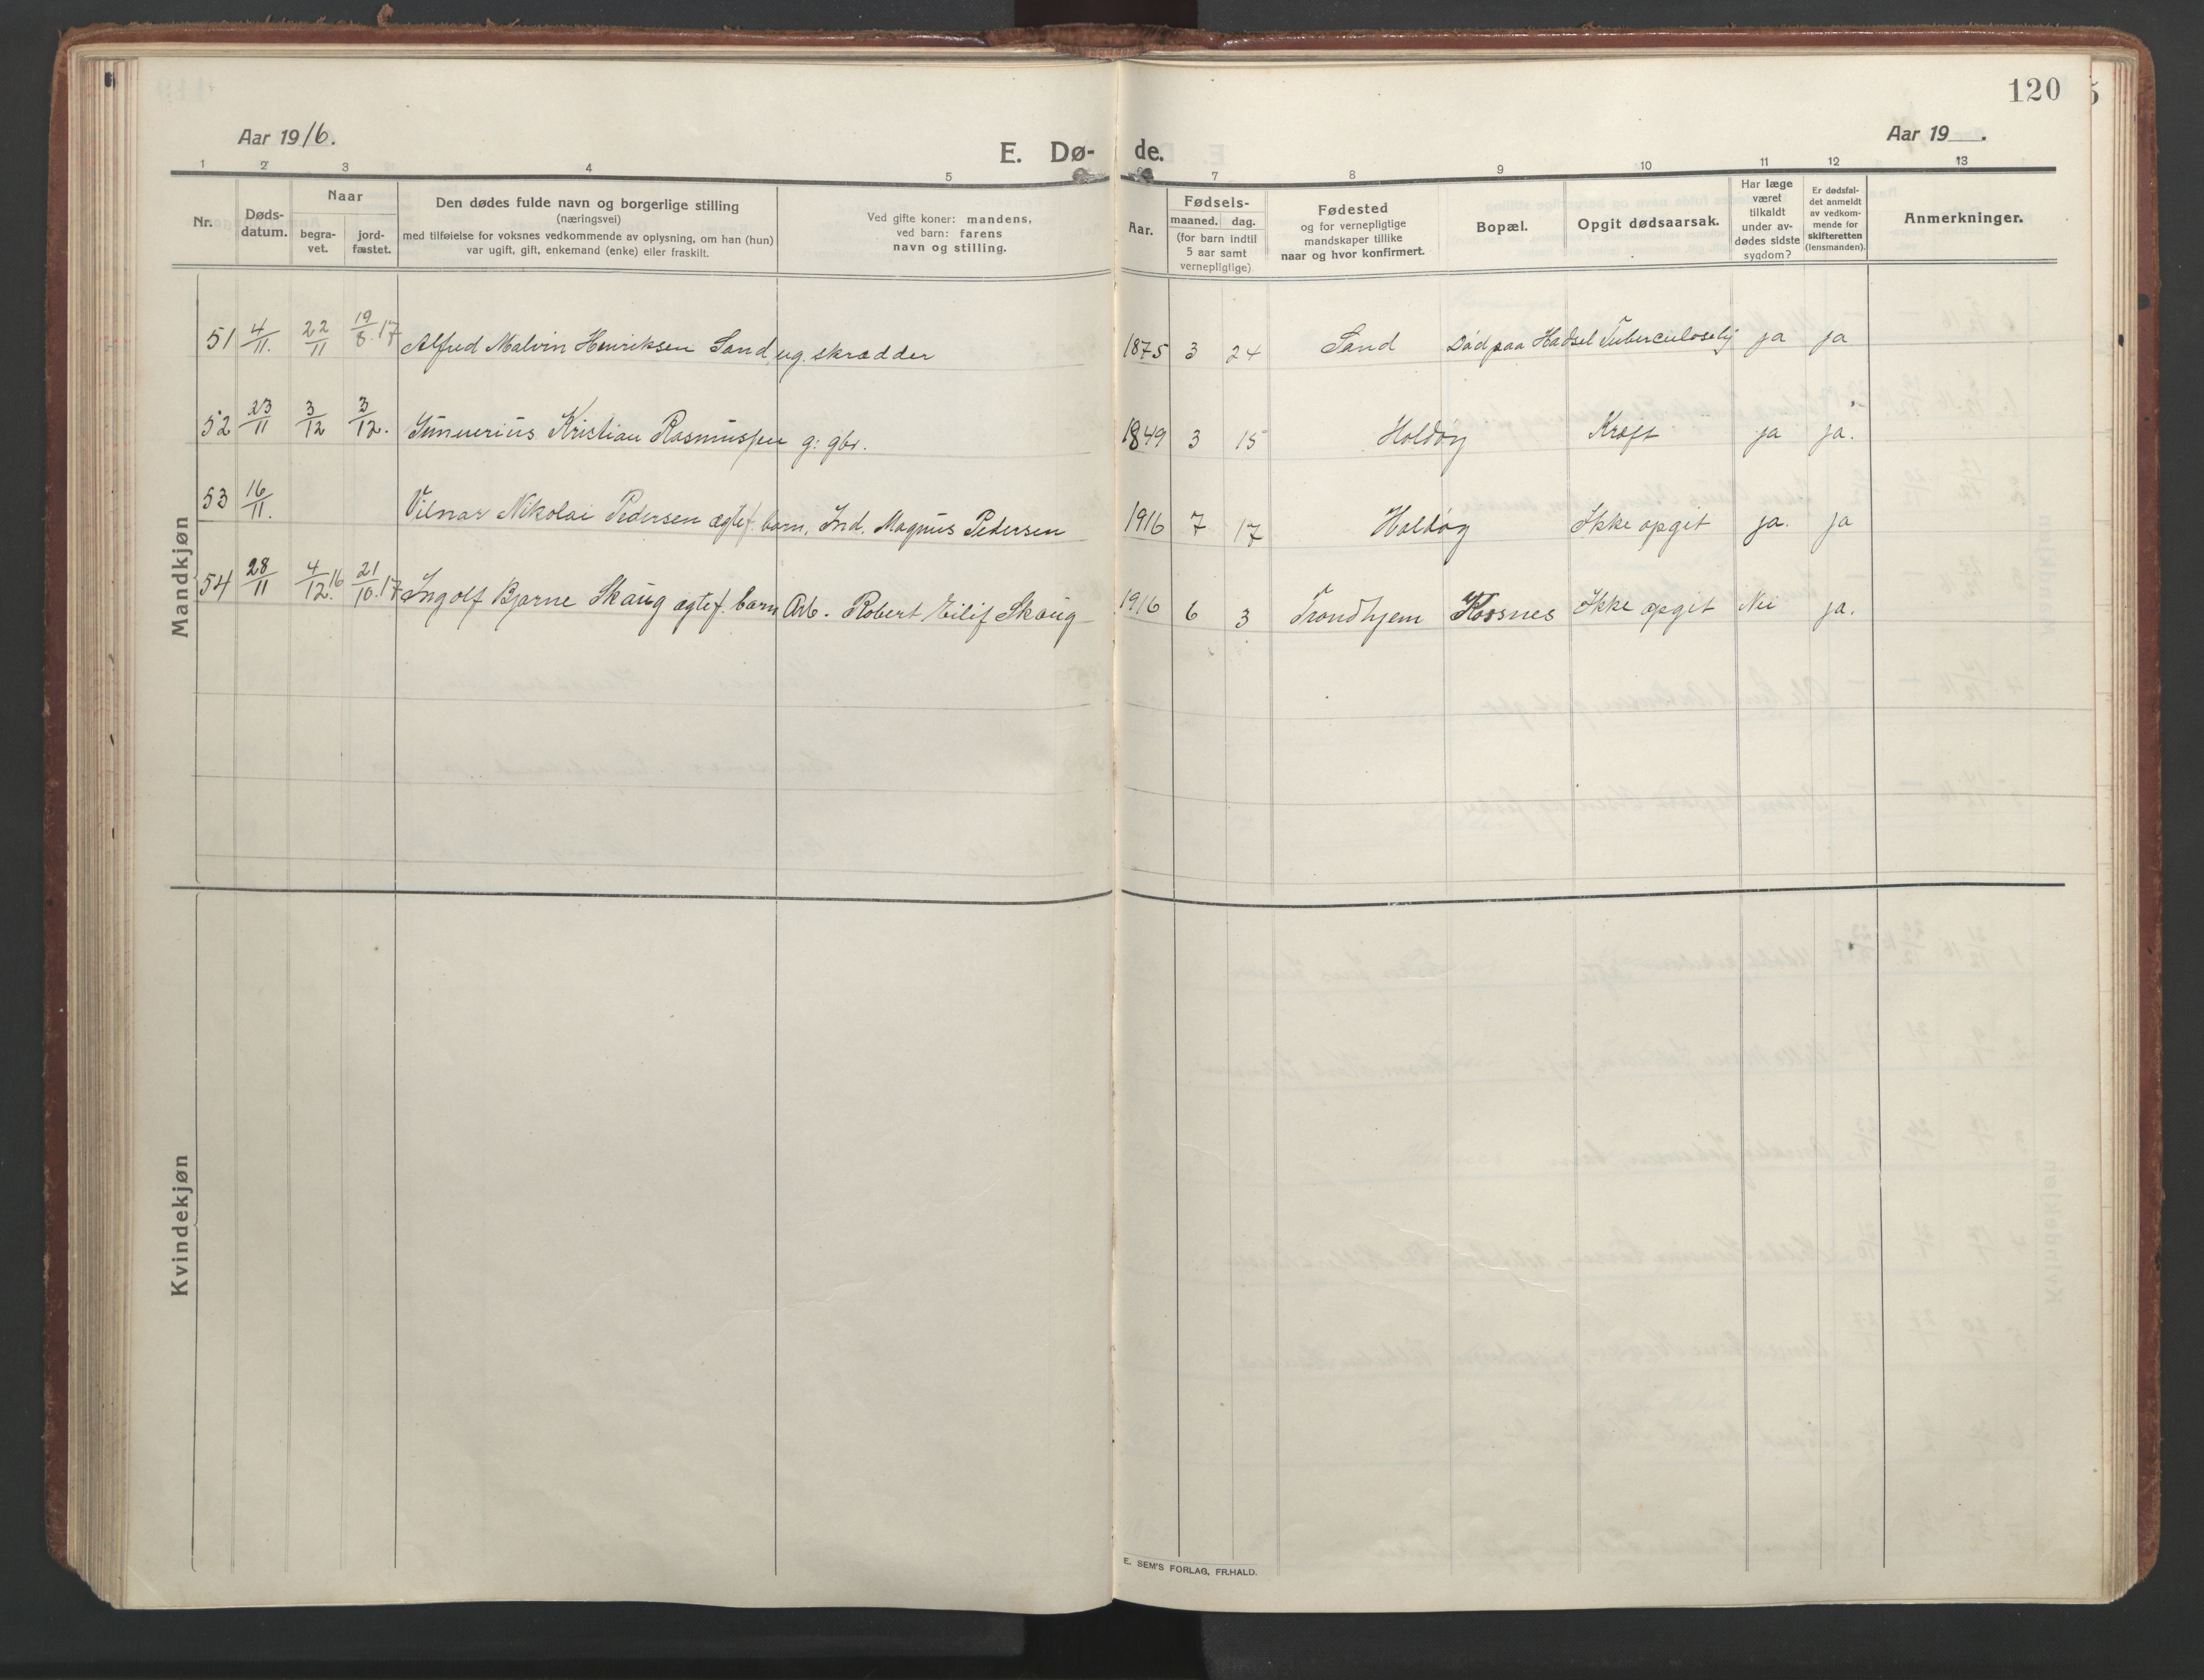 120
Aar 1916.
E. Dø-
de.
Aar 19   .
1 2 3 4 5 7 8 9 10 11 12 13
Nr.
Døds-
datum.
Naar
begra-
vet.
jord-
fæstet.
Den dødes fulde navn og borgerlige stilling
(næringsvei)
med tilføielse for voksnes vedkommende av oplysning, om han (hun)
var ugift, gift, enkemand (enke) eller fraskilt.
Ved gifte koner: mandens,
ved barn: farens
navn og stilling.
Aar.
Fødsels-
maaned. dag.
(for barn indtil
5 aar samt
vernepligtige)
Fødested
og for vernepligtige
mandskaper tillike
naar og hvor konfirmert.
Bopæl.
Opgit dødsaarsak.
Har læge
været
tilkaldt
under av-
dødes sidste
sygdom?
Er dødsfal-
det anmeldt
av vedkom-
mende for
skifteretten
(lensmanden).
Anmerkninger.
Mandkjøn
51 4/11. 22/11 19/8.17 Alfred Malvin Henriksen Sand, ug. skrædder 1875 3 24 Sand Död paa Hadsel Tuberculosehj ja ja
52 23/11 3/12 3/12. Kristian Rasmussen g: gbr. 1849 3 15 Holdøy Kræft ja ja.
53 16/11. Vilnar Nikolai Pedersen ægtef. barn, Ind. Magnus Pedersen 1916 7 17 Holdøy Ikke opgit ja. ja
54 28/11 4/12.16 21/10.17 Ingolf Bjarne Skaug ægtef. barn Arb. Robert Eilif Skaug 1916 6 3 Trondhjem Korsnes Ikke opgit Nei ja.
Kvindekjøn
E. SEM'S FORLAG, FR.HALD.